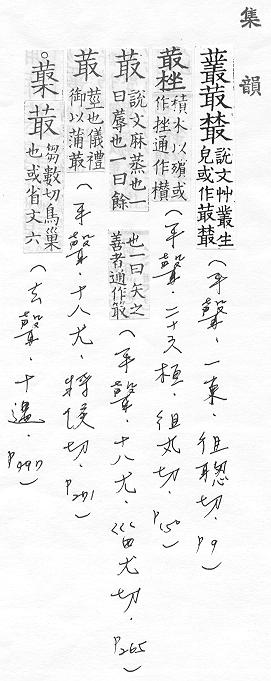 集韻
叢菆藂 說文艸叢生皃或作菆藂(平聲.一東.徂聰切.P9)
菆㭫 積木以殯或作㭫通作欑(平聲.二十六桓.徂丸切.P150)
菆 說文麻蒸也一曰蓐也一曰餘也一曰矢之善者通作䈀(平聲.十八尤.甾尤切.P265)
菆 莖也儀禮御以蒲菆(平聲.十八尤.將侯切.P271)
。菆 芻數切鳥巢也或省文六(去聲.十遇.P497)